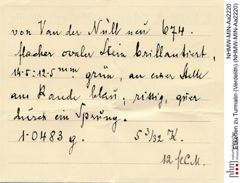 von Van der Nüll neu 674.
flacher ovaler Stein brillantiert,
14·5 : 12·5 mm grün, an einer Stelle
am Rande blau; rissig, quer
durch ein Sprung.
1·0483 g. 5 3/32 K.
12 fl C.M.
NHMW-MIN-Aa2220
Etiketten zu Turmalin (Verdelith) (NHMW-MIN-Aa2220)
nhm